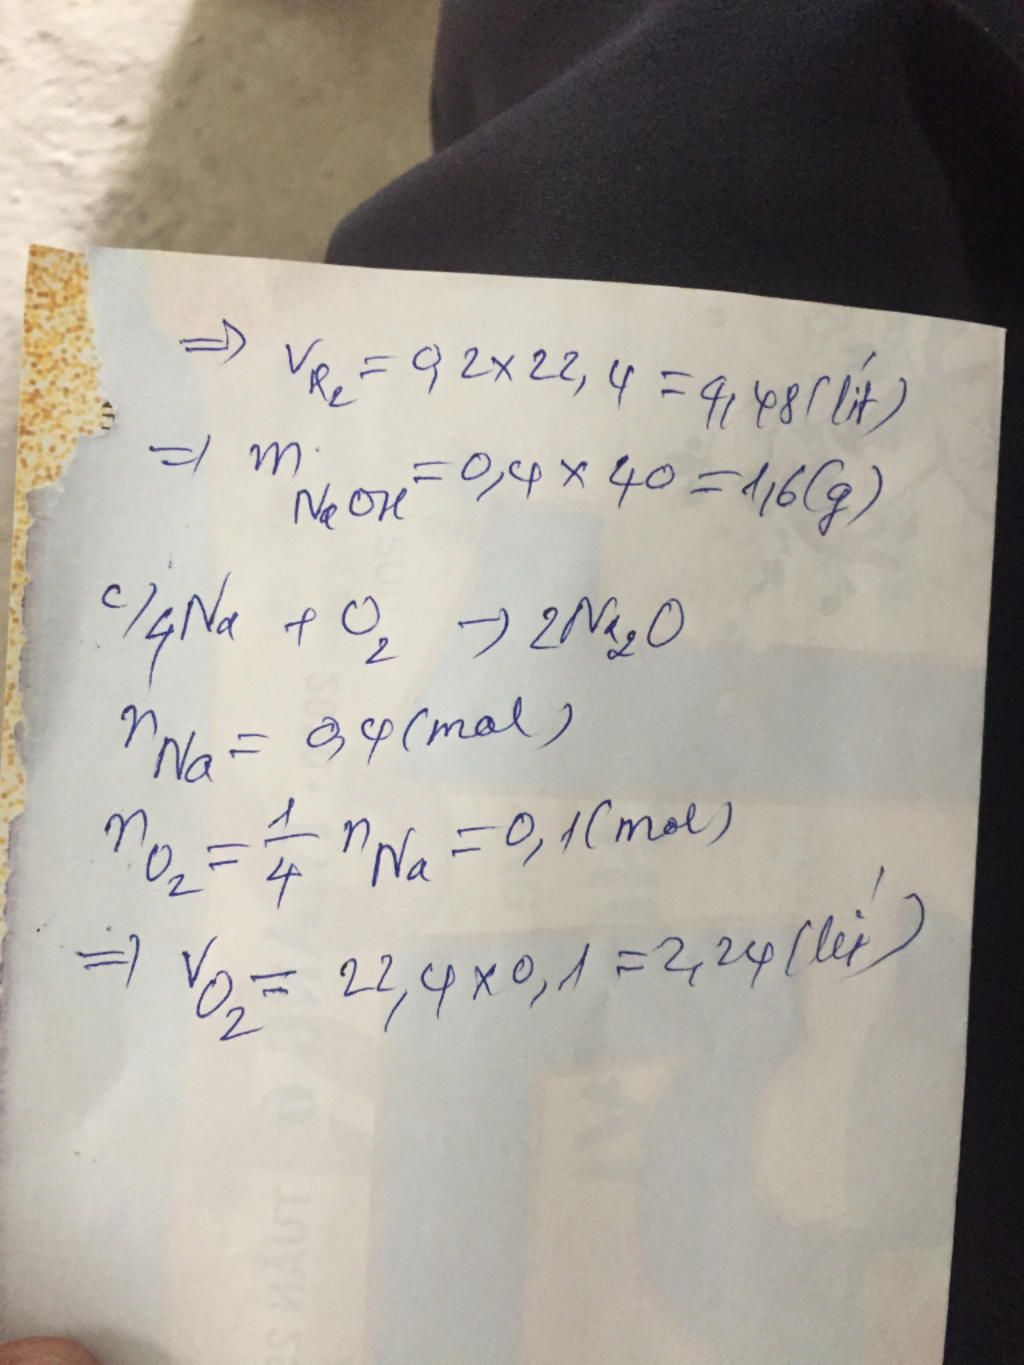 ⇒ V_H₂ = 0,2 x 22,4 = 4,48 (lít)
⇒ m NaOH = 0,4 x 40 = 1,6 (g)
c/ 4Na + O₂ → 2Na₂O
n_Na = 0,4 (mol)
n_O₂ = 1/4 n_Na = 0,1 (mol)
⇒ V_O₂ = 22,4 x 0,1 = 2,24 (lít)
TUẦN